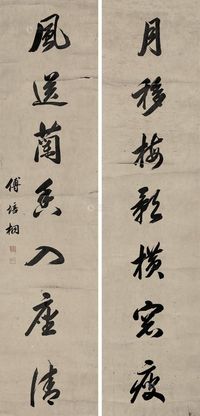 月移梅影横窗瘦
風送蘭香入座清
傅培栩